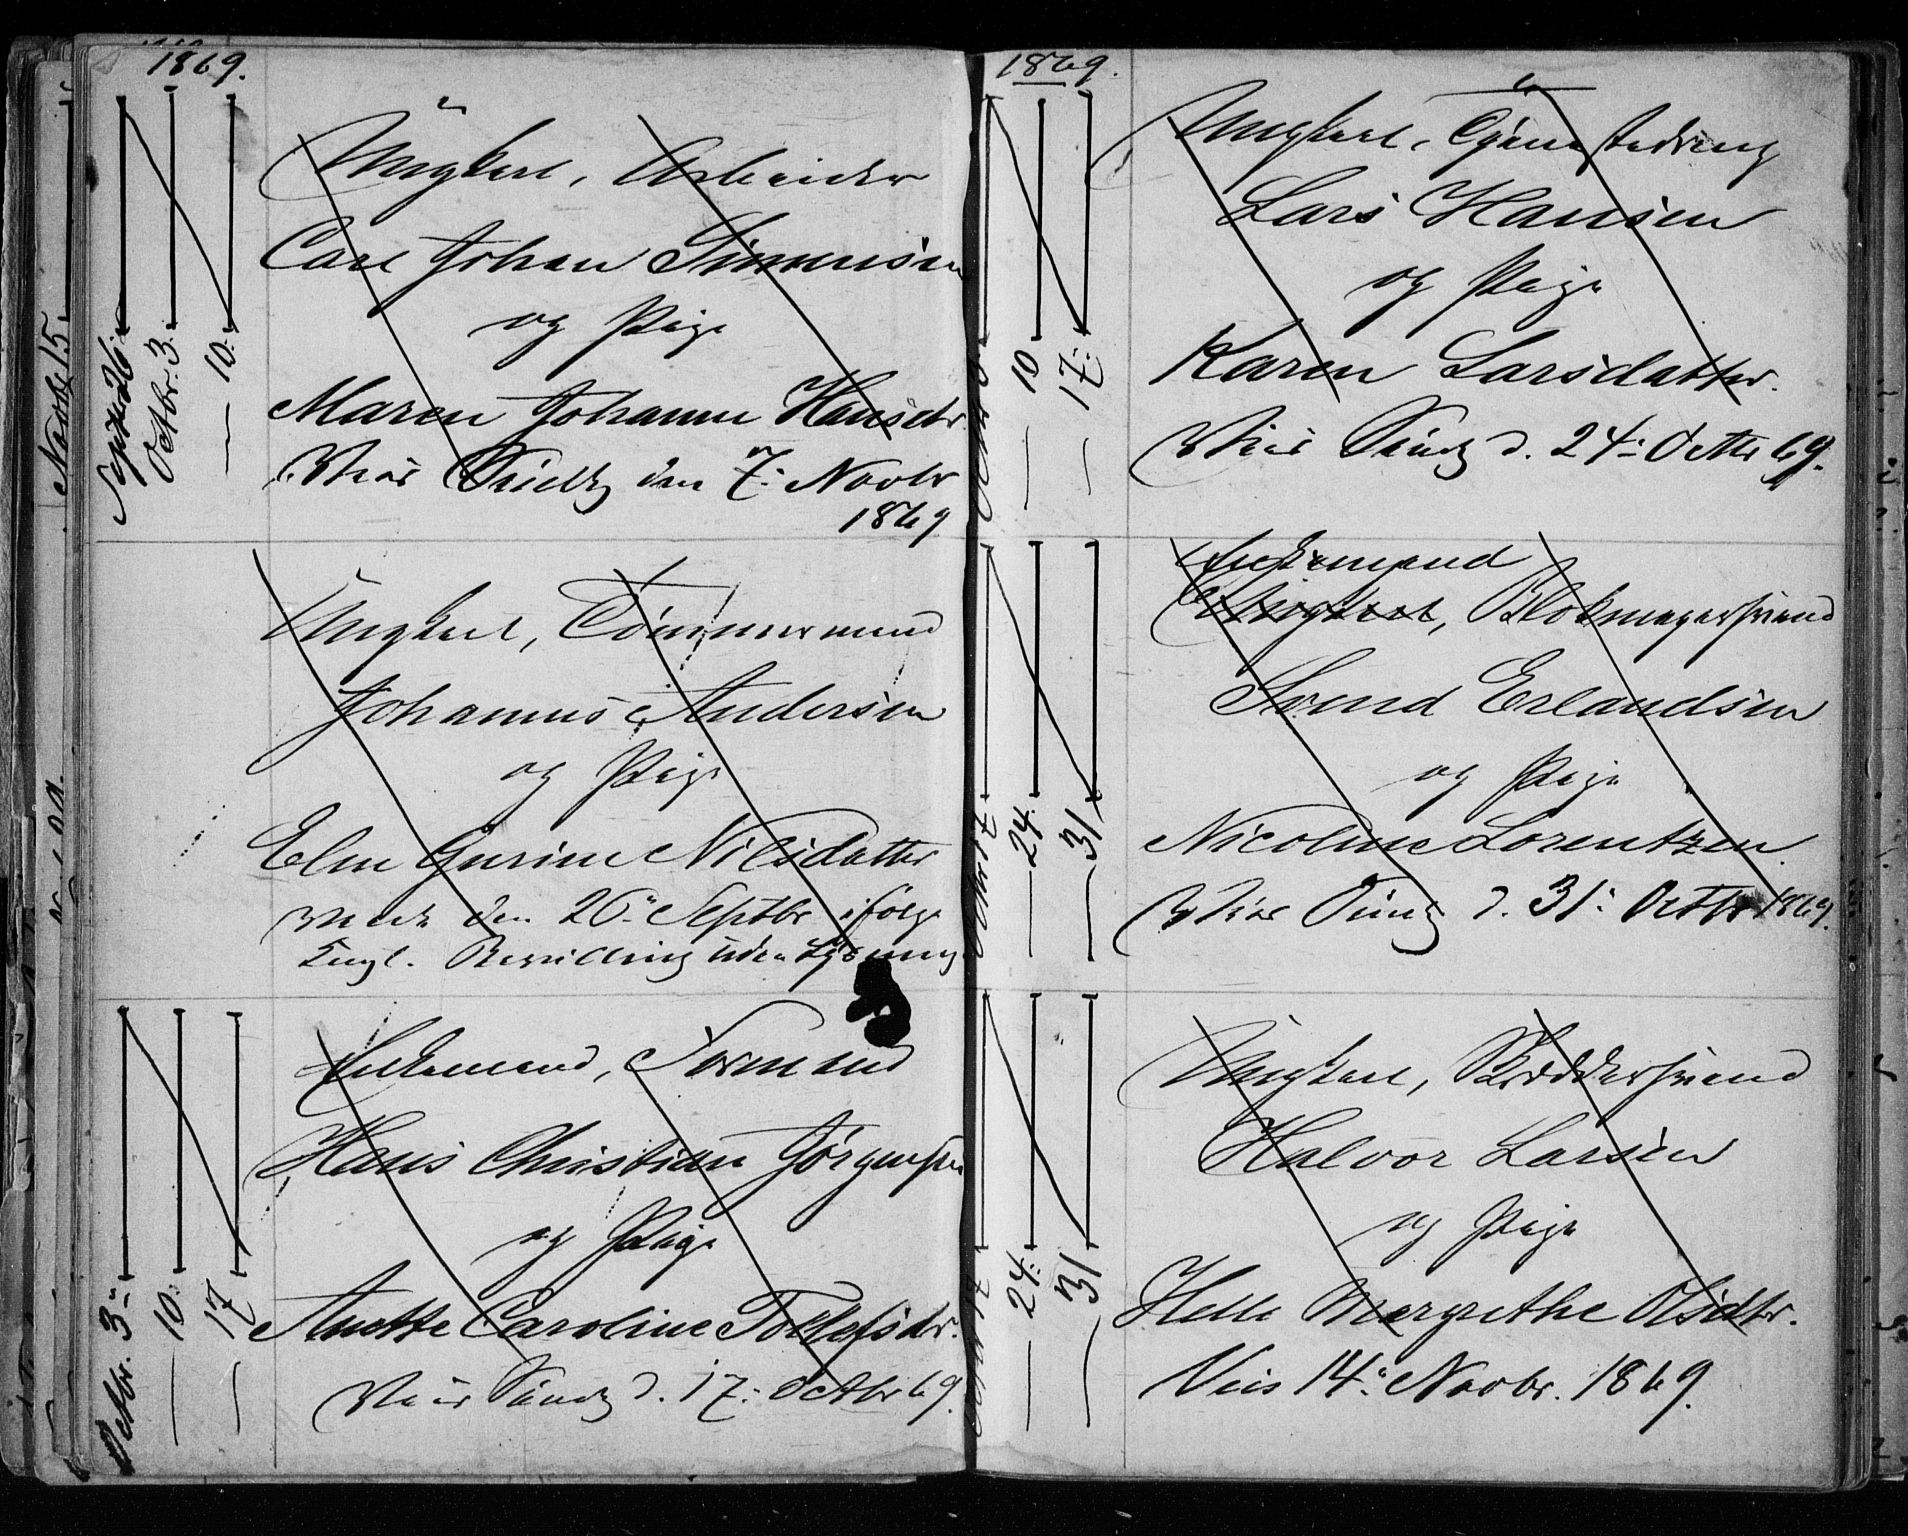 1869.
Septbr 26.
Octbr. 3.
— 10.
Ungkarl, Arbeider
Carl Johan Simensen
og Pige
Maren Johanne Hansdtr
Viet den 7. Novbr
1869
Ungkarl, Tømmermand
Johannes Andersen
og Pige
Elen Gurine Nilsdatter
den 26 Septbr ifølge
Kngl. Bevilling uden Lysning
Octbr. 3
— 10.
— 17
Enkemand, Sømand
Hans Christian Jørgensen
og Pige
Anette Caroline Tollefsdtr.
d. 17. Octbr 69.
1869.
— 10
— 17.
Ungkarl, Tjenestedreng
Lars Hansen
og Pige
Karen Larsdatter.
d. 24. Octbr 69.
Octbr 17
— 24.
— 31
Enkemand
Ungkarl, Blokmagersvend
Svend Erlandsen
og Pige
Nicoline Lorentzen.
d. 31. Octbr 1869.
Octbr 17
— 24.
— 31
Ungkarl, Skræddersvend
Halvor Larsen
og Pige
Helle Margrethe Olsdtr.
Viet 14. Novbr. 1869.
Novbr 15